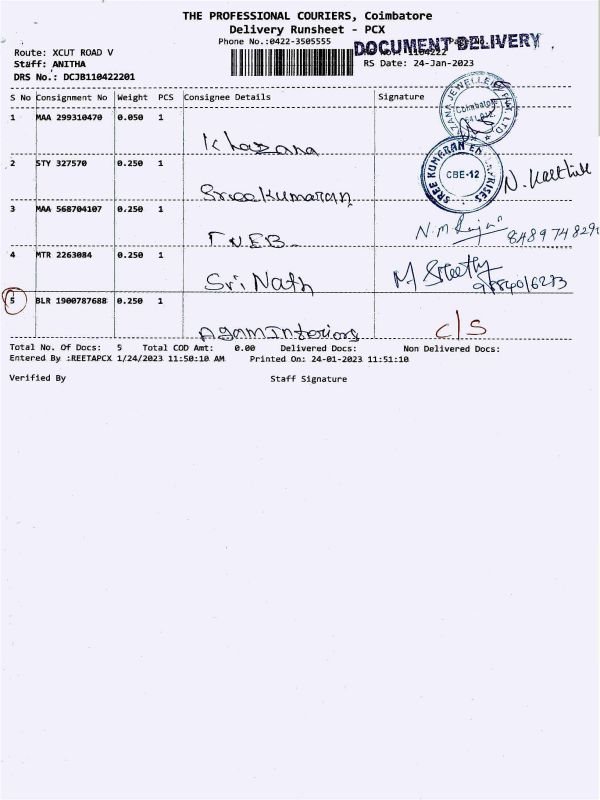 THE PROFESSIONAL COURIERS, Coimbatore
Delivery Runsheet - PCX
Phone No.:0422-3505555
DOCUMENT DELIVERY
Route: XCUT ROAD V
Staff: ANITHA
RS Date: 24-Jan-2023
DRS No.: DCJB110422201
S No Consignment No Weight PCS Consignee Details Signature
1 MAA 299310470 0.050 1
Khazana
2 STY 327570 0.250 1
SREE KUMARAN CBE-12
Sreekumaran
3 MAA 568704107 0.250 1
TNEB
4 MTR 2263084 0.250 1
Sri Nath
5 BLR 1900787688 0.250 1
Agam Interiors C/S
Total No. Of Docs: 5 Total COD Amt: 0.00 Delivered Docs: Non Delivered Docs:
Entered By :REETAPCX 1/24/2023 11:50:10 AM Printed On: 24-01-2023 11:51:10
Verified By Staff Signature